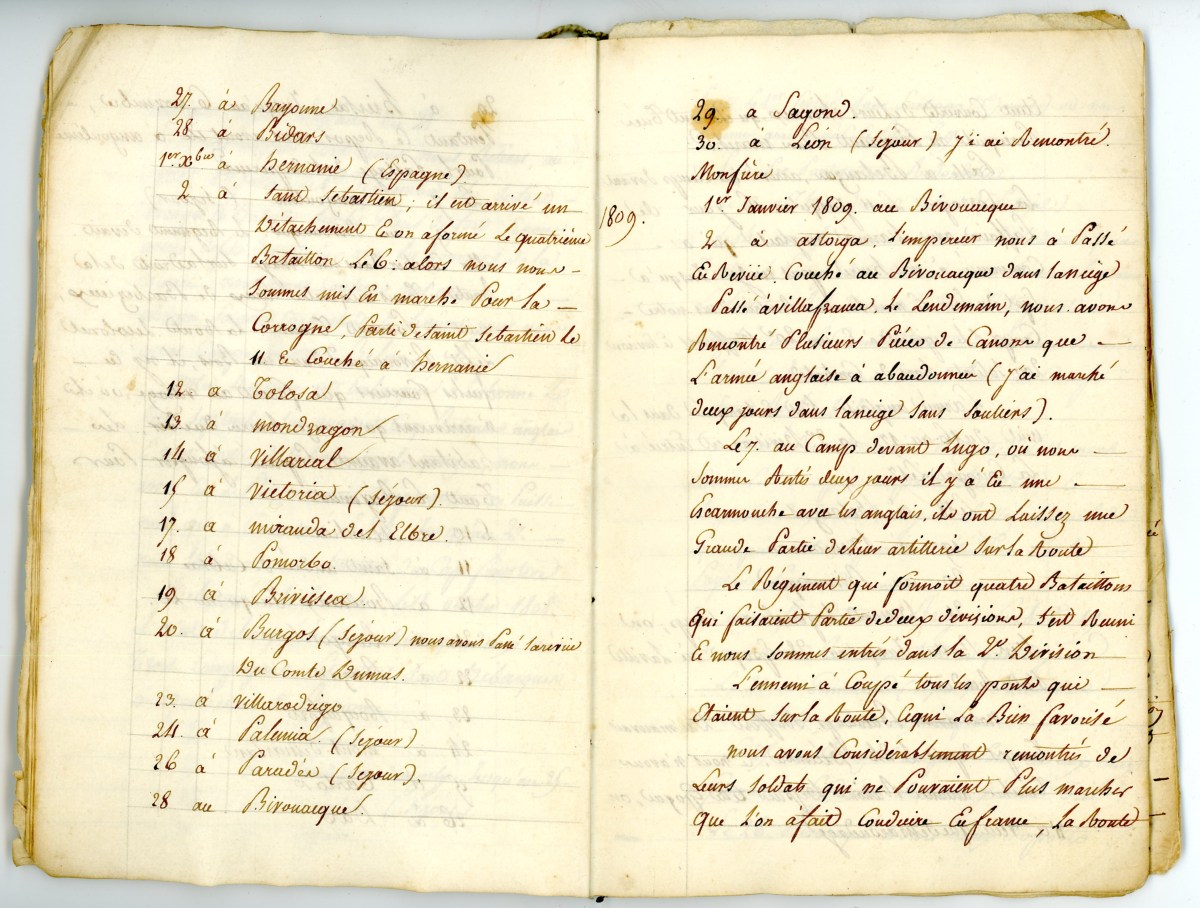 27. à Bayonne
28 à Bidars
1er Xbre à hernanie (Espagne)
2 à Saint Sebastien, il est arrivé un
Détachement & on a formé Le quatriéme
Bataillon Le 6. alors nous nous
Sommes mis En marche Pour la
Corrogne, Parti de Saint Sebastien le
11 & Couché à hernanie
12. a Tolosa
13. à mondragon
14 à Villarial
15 à Victoria (Séjour).
17. a miranda del Elbre.
18 à Pomorbo.
19 à Briviesca.
20. à Burgos (Sejour) nous avons Passé la reviü
Du Comte Dumas.
23. a Villarodrigo
24. a Palensia. (Séjour)
26 à Paradés (Sejour).
28 au Birouacque.
29. a Sagond.
30. à Léon (Séjour) j'i ai Rencontré
Monfrére
1809.
1er Janvier 1809. au Birouacque
2 à astorga, L'empereur nous à Passé
En Reviië. Couché au Birouacque dans laneige
Passé àvillafranca, Le Lendemain, nous avons
Rencontré Plusieurs Piéces de Canons que
L'armée anglaise à abandonnée (j'ai marché
deux jours dans laneige Sans Souliers).
Le 7. au Camp devant Lugo, où nous
Sommes Restés deux jours il y à Eu une
Escarmouche avec les anglais, ils ont Laissez une
Grande Partie de Leur artillerie Sur la Route
Le Régiment qui formoit quatre Bataillons
Qui faisaient Partie de deux divisions, S'est Reuni
& nous Sommes entrés dans la 2e. Division
L'ennemi à Coupé tous les ponts qui
Etaient Sur la Route, Cequi L'a Bien favorisé
nous avons Considérablement rencontrés de
Leurs Soldats qui ne Pouvaient Plus marcher
Que L'on àfait Conduire En france, La Route